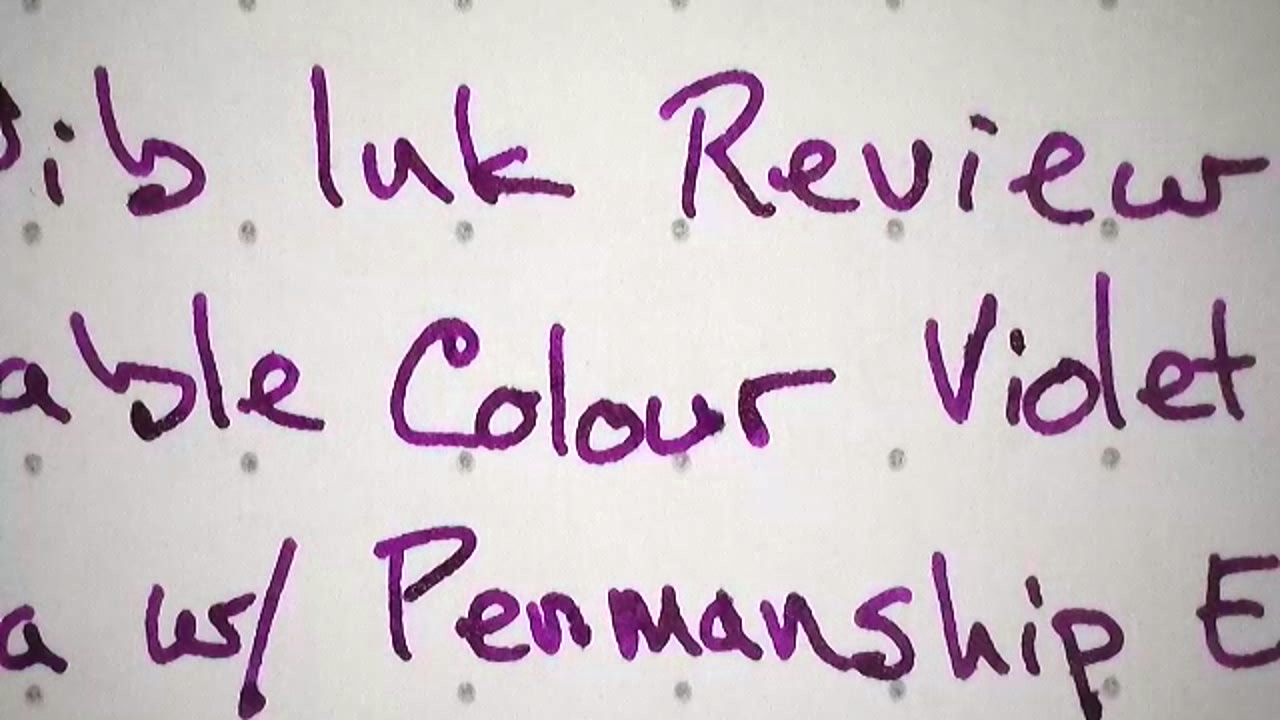 ib Ink Review
able Colour Violet
a w/ Penmanship E